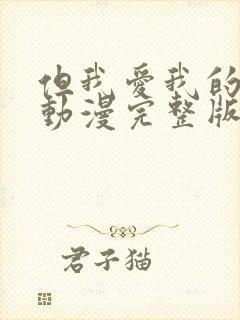 但我愛我的
動漫完整版
君子猫